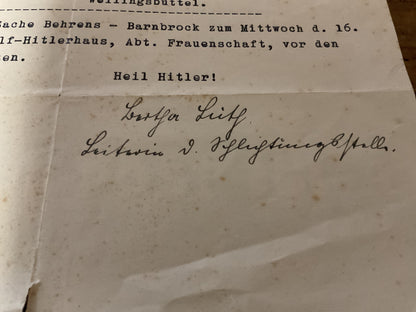 Wellingsbüttel.
ache Behrens - Barnbrock zum Mittwoch d. 16.
lf-Hitlerhaus, Abt. Frauenschaft, vor den
en.
Heil Hitler!
Bertha Lüth
Leiterin d. Schlichtungsstelle.